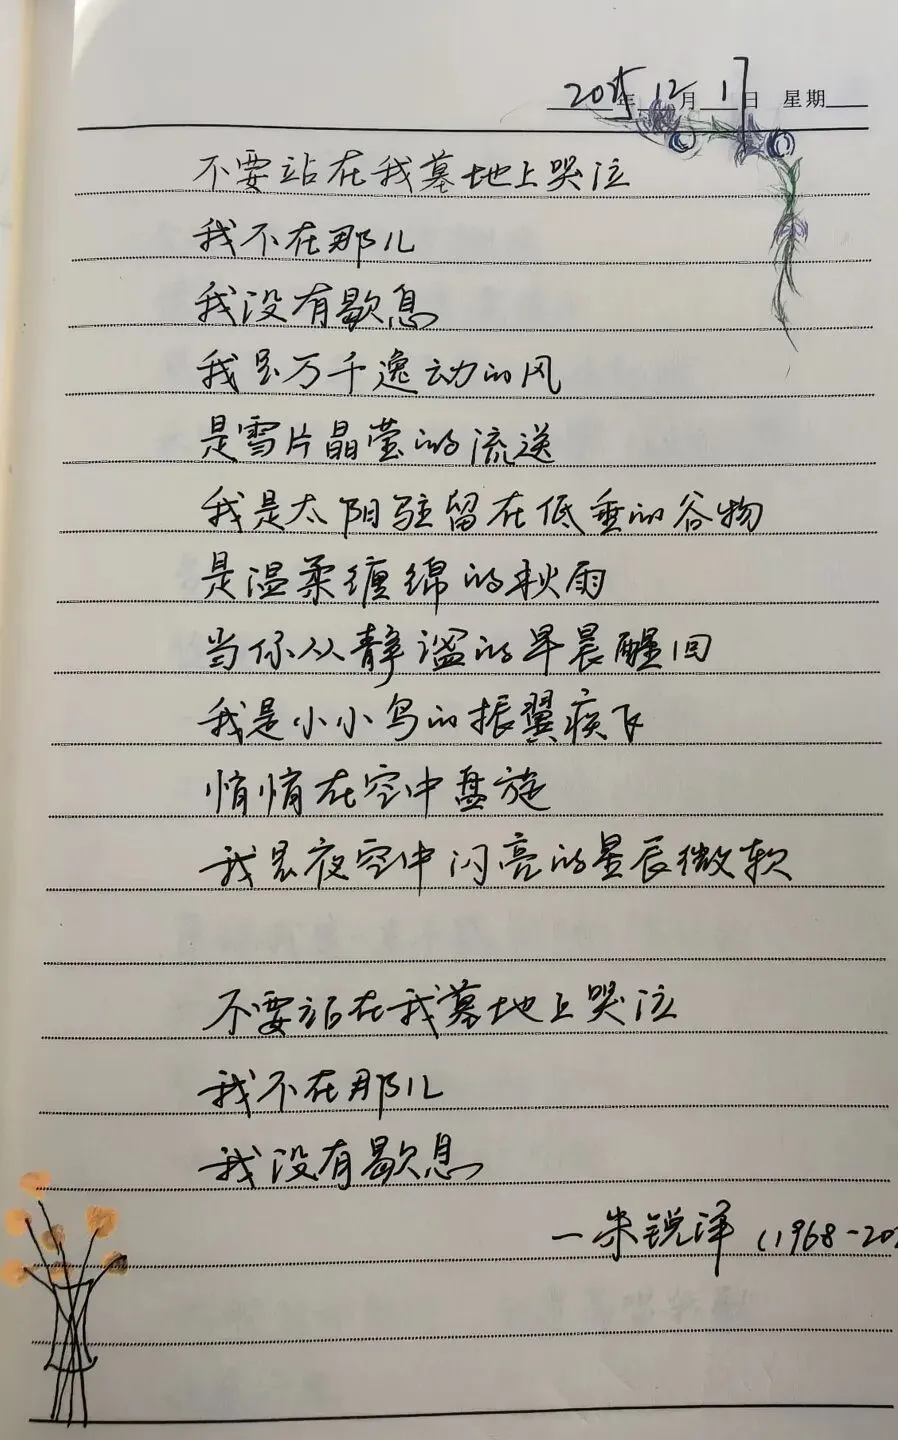 2025年12月17日 星期
不要站在我墓地上哭泣
我不在那儿
我没有歇息
我是万千逸动的风
是雪片晶莹的流送
我是太阳驻留在低垂的谷物
是温柔缠绵的秋雨
当你从静谧的早晨醒回
我是小小鸟的振翼疾飞
悄悄在空中盘旋
我是夜空中闪亮的星辰微软
不要站在我墓地上哭泣
我不在那儿
我没有歇息
一朱锐洋 (1968-20